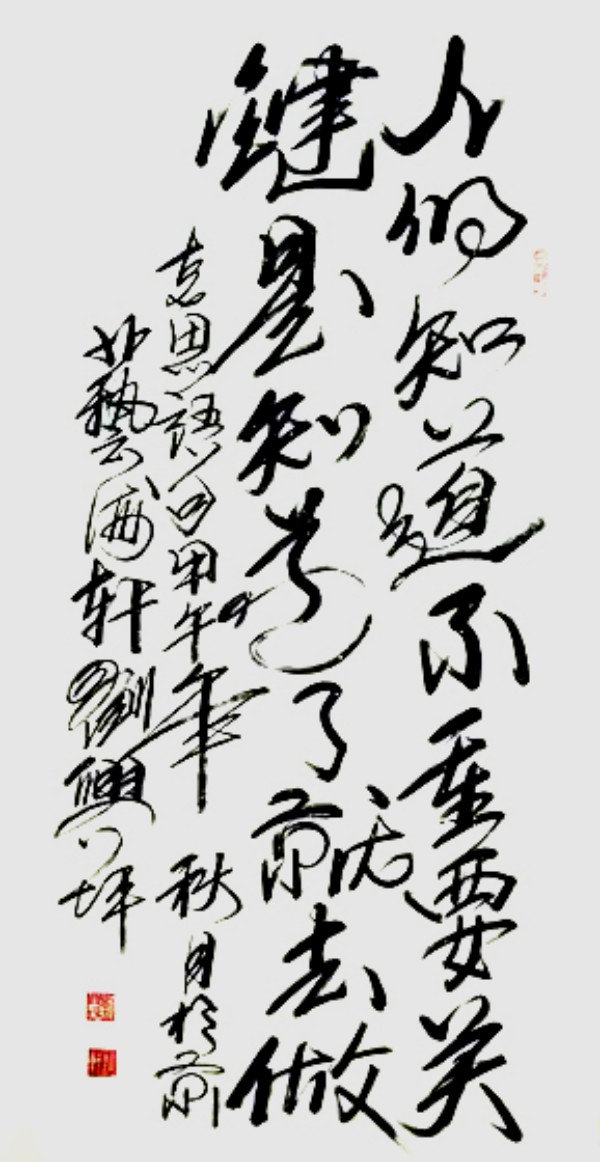 人的知道不重要关
键是知道了就去做
思語句甲午年秋月於京
北藝海轩劉興坪